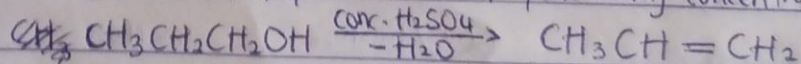 CH3CH2CH2OH conc. H2SO4 / -H2O > CH3CH=CH2